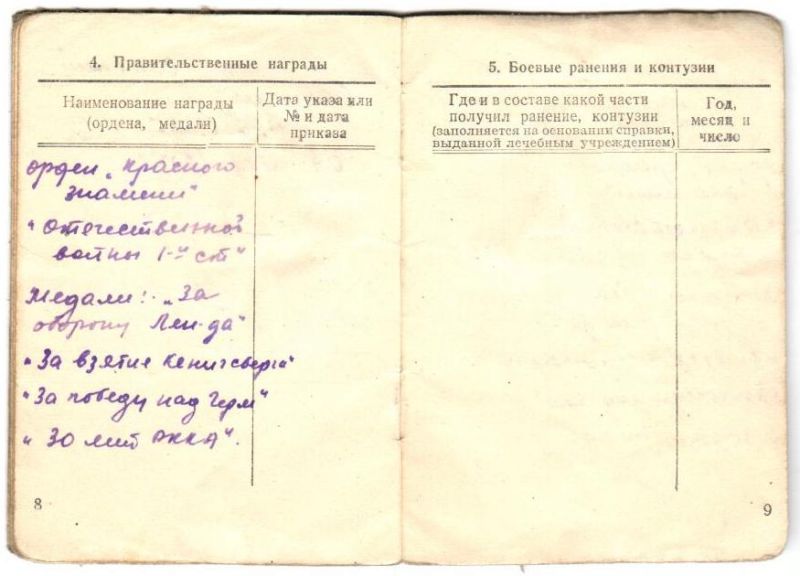 4. Правительственные награды
Наименование награды
(ордена, медали)
Дата указа или
№ и дата
приказа
орден „Красного
знамени"
"Отечественной
войны 1-й ст"
Медали: „За
оборону Лен-да"
"За взятие Кенигсберга"
"За победу над Герм"
"30 лет РККА".
8
5. Боевые ранения и контузии
Где и в составе какой части
получил ранение, контузии
(заполняется на основании справки,
выданной лечебным учреждением)
Год,
месяц и
число
9